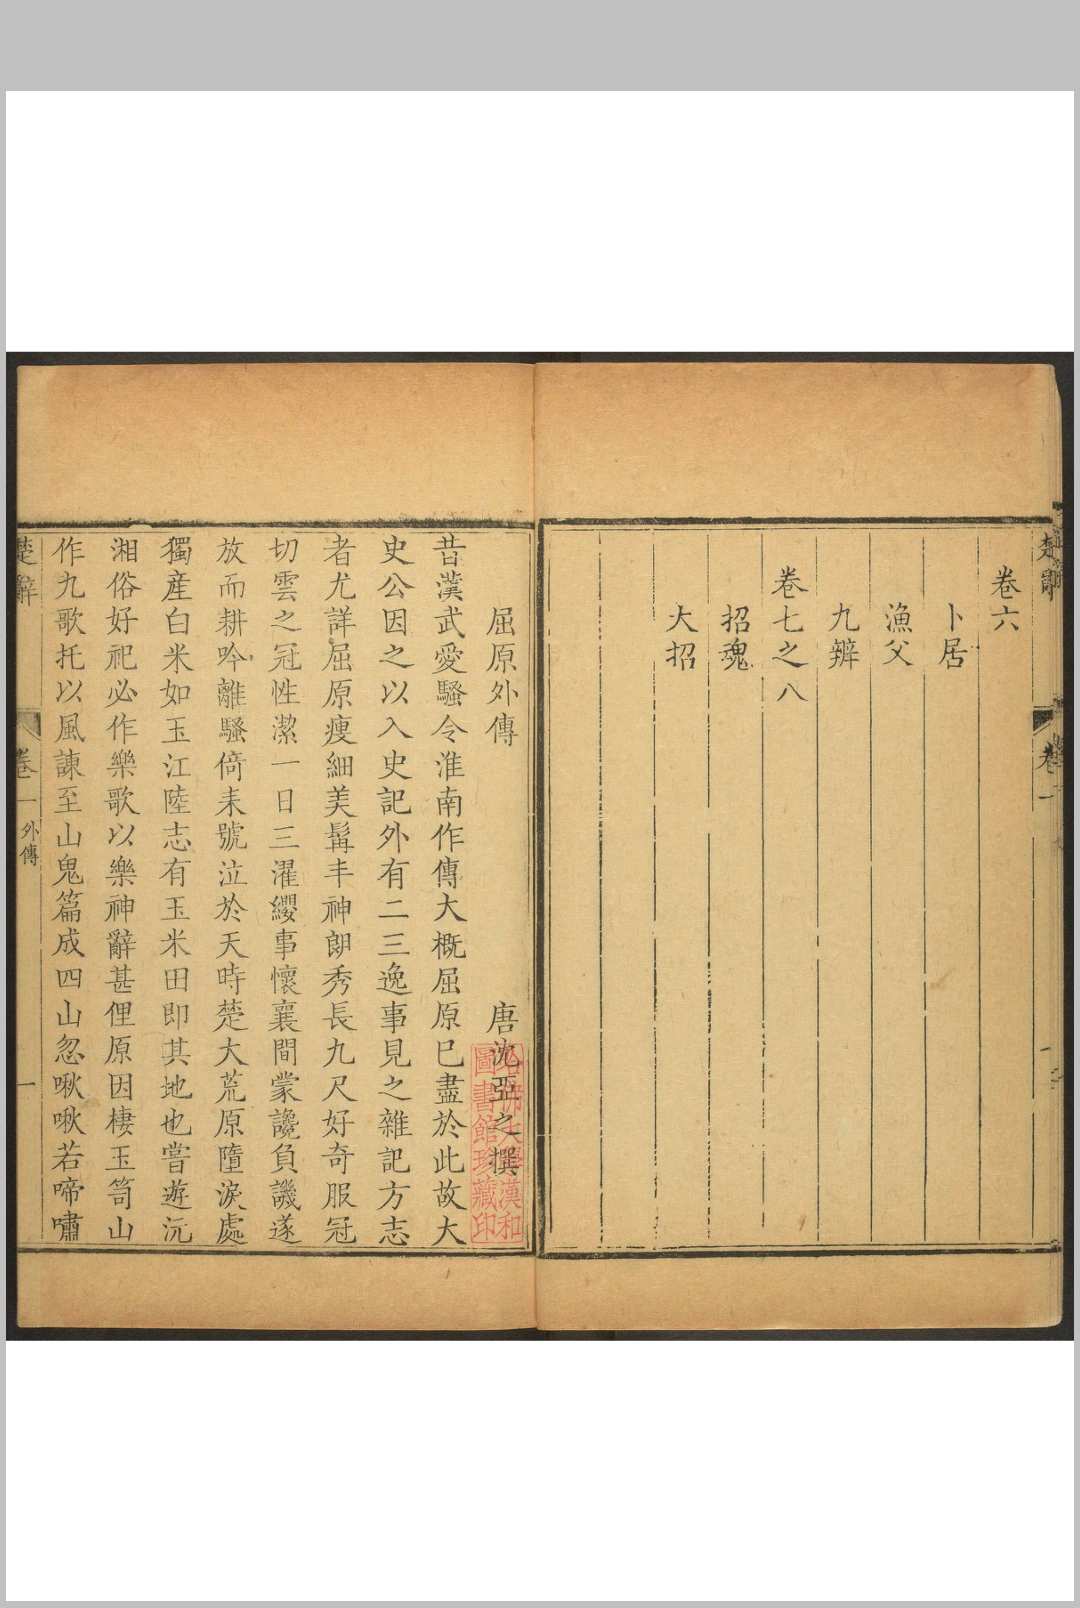 楚辭
卷一
卷六
卜居
漁父
九辨
卷七之八
招魂
大招
屈原外傳
唐沈亞之撰
昔漢武愛騷令淮南作傳大概屈原已盡於此故大
史公因之以入史記外有二三逸事見之雜記方志
者尤詳屈原瘦細美髯丰神朗秀長九尺好奇服冠
切雲之冠性潔一日三濯纓事懷襄間蒙讒負譏遂
放而耕吟離騷倚耒號泣於天時楚大荒原墮淚處
獨產白米如玉江陸志有玉米田即其地也嘗遊沅
湘俗好祀必作樂歌以樂神辭甚俚原因棲玉笥山
作九歌托以風諫至山鬼篇成四山忽啾啾若啼嘯
楚辭
卷一
外傳
一
漢和
圖書館珍藏印